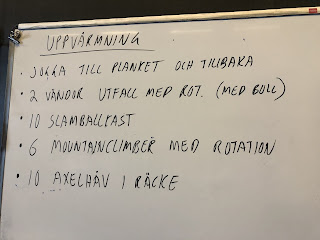 UPPVÄRMNING
• JOGGA TILL PLANKET OCH TILLBAKA
• 2 VÄNDOR UTFALL MED ROT. (MED BOLL)
• 10 SLAMBALLKAST
• 6 MOUNTAINCLIMBER MED ROTATION
• 10 AXELHÄV I RÄCKE